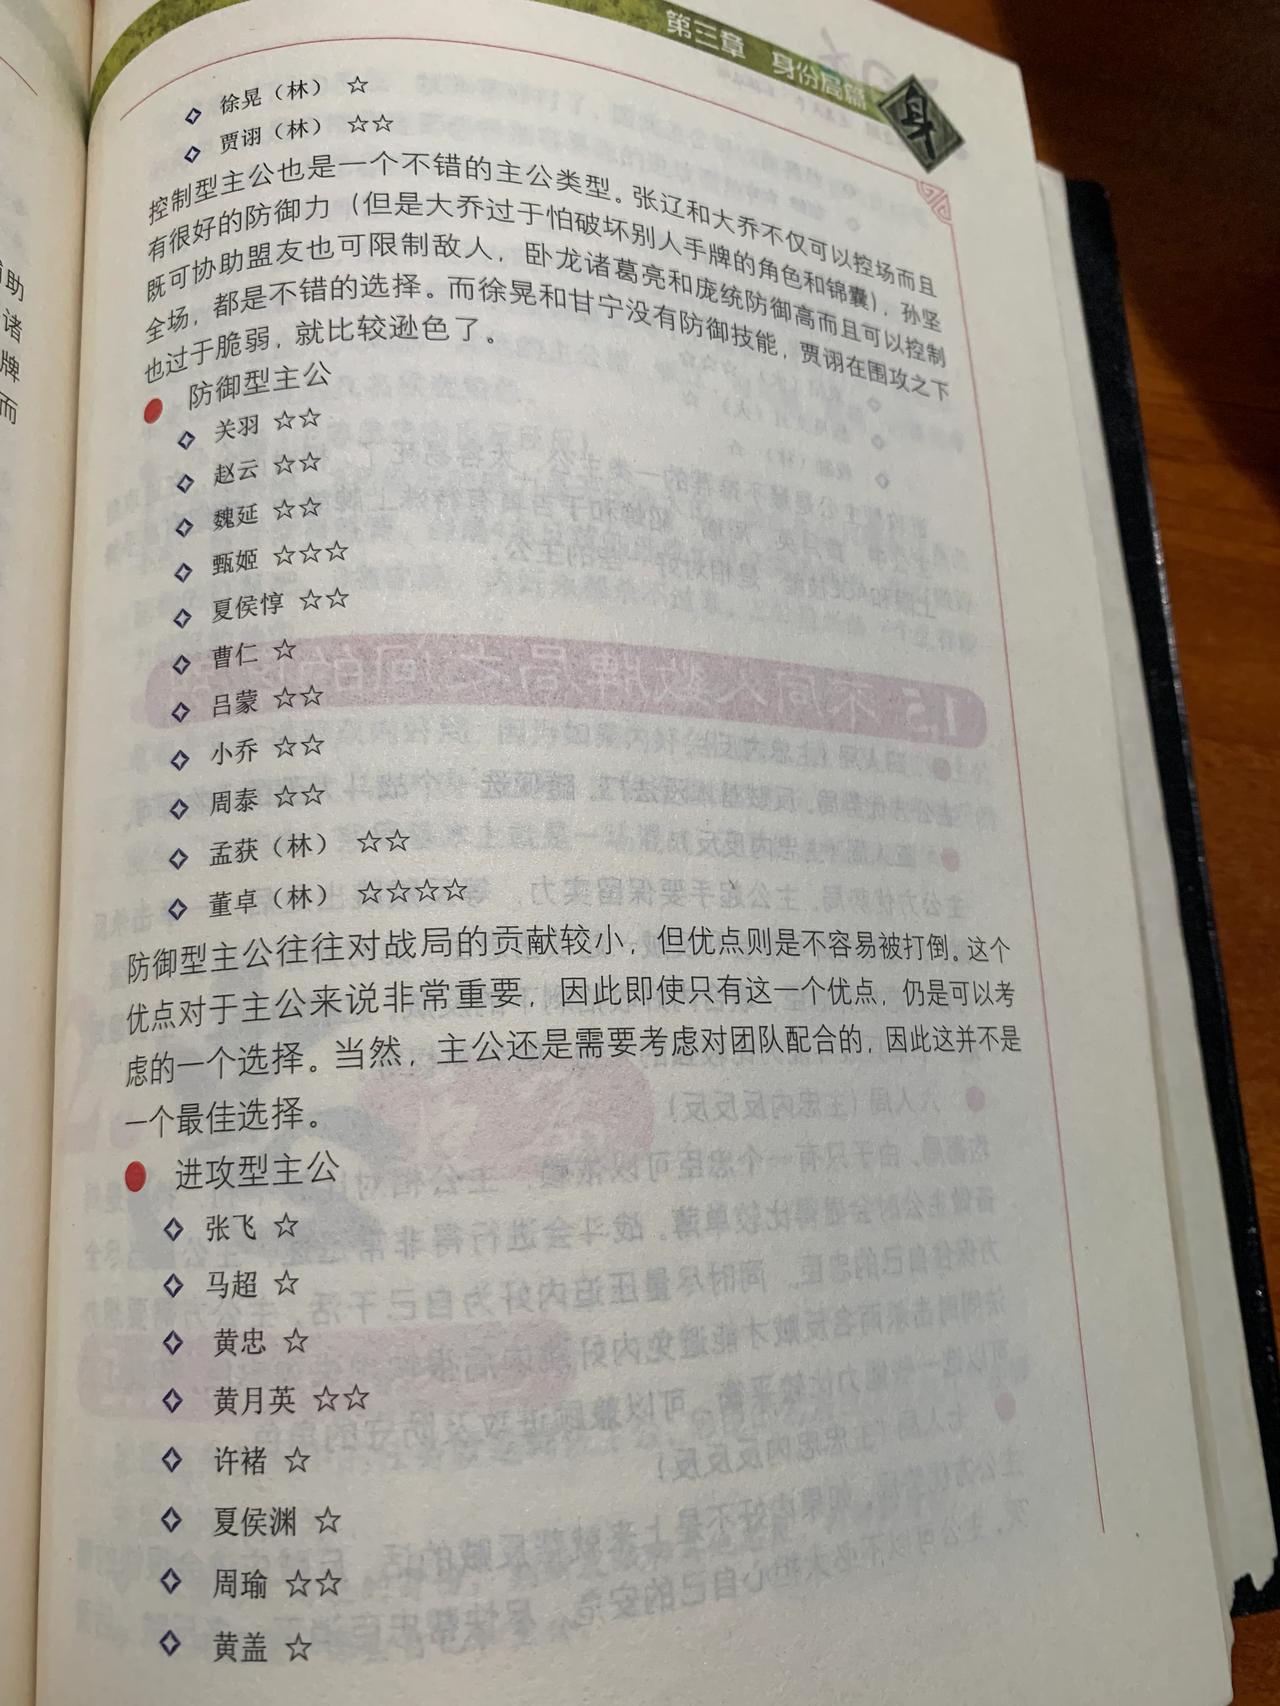 第三章 身份局篇
身
徐晃（林） ☆
贾诩（林） ☆☆
控制型主公也是一个不错的主公类型。张辽和大乔不仅可以控场而且
有很好的防御力（但是大乔过于怕破坏别人手牌的角色和锦囊），孙坚
既可协助盟友也可限制敌人，卧龙诸葛亮和庞统防御高而且可以控制
全场，都是不错的选择。而徐晃和甘宁没有防御技能，贾诩在围攻之下
也过于脆弱，就比较逊色了。
防御型主公
关羽 ☆☆
赵云 ☆☆
魏延 ☆☆
甄姬 ☆☆☆
夏侯惇 ☆☆
曹仁 ☆
吕蒙 ☆☆
小乔 ☆☆
周泰 ☆☆
孟获（林） ☆☆
董卓（林） ☆☆☆☆
防御型主公往往对战局的贡献较小，但优点则是不容易被打倒。这个
优点对于主公来说非常重要，因此即使只有这一个优点，仍是可以考
虑的一个选择。当然，主公还是需要考虑对团队配合的，因此这并不是
一个最佳选择。
进攻型主公
张飞 ☆
马超 ☆
黄忠 ☆
黄月英 ☆☆
许褚 ☆
夏侯渊 ☆
周瑜 ☆☆
黄盖 ☆
助
诸
牌
而